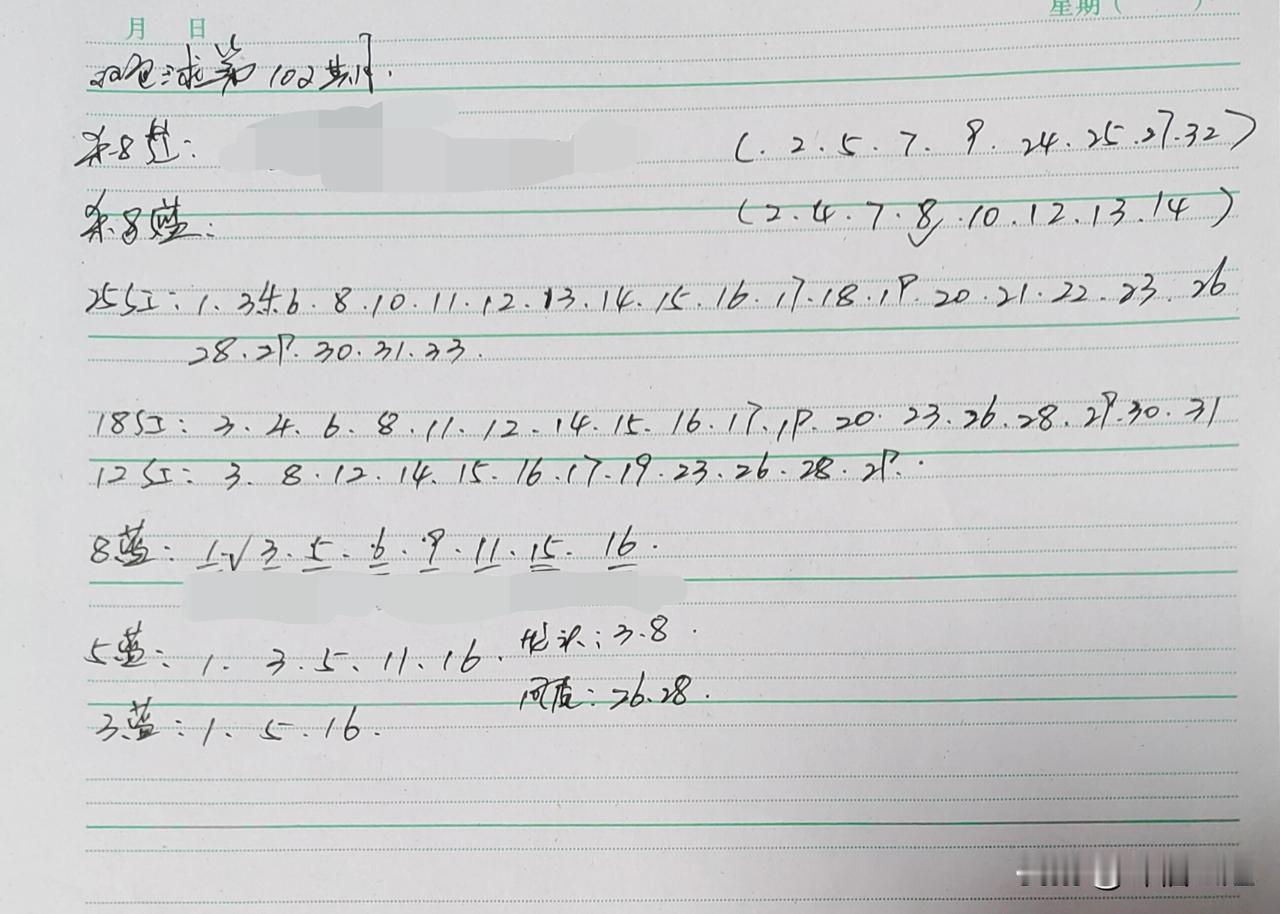 月 日
星期(
双色球第102期.
杀8红: (.2.5.7.9.24.25.27.32)
杀8蓝: (2.4.7.8.10.12.13.14)
25红: 1.3.4.6.8.10.11.12.13.14.15.16.17.18.19.20.21.22.23.26
28.29.30.31.33.
18红: 3.4.6.8.11.12.14.15.16.17.19.20.23.26.28.29.30.31
12红: 3.8.12.14.15.16.17.19.23.26.28.29.
8蓝: 1√3.5.6.9.11.15.16.
5蓝: 1.3.5.11.16. 龙头:3.8.
凤尾:26.28.
3蓝: 1.5.16.